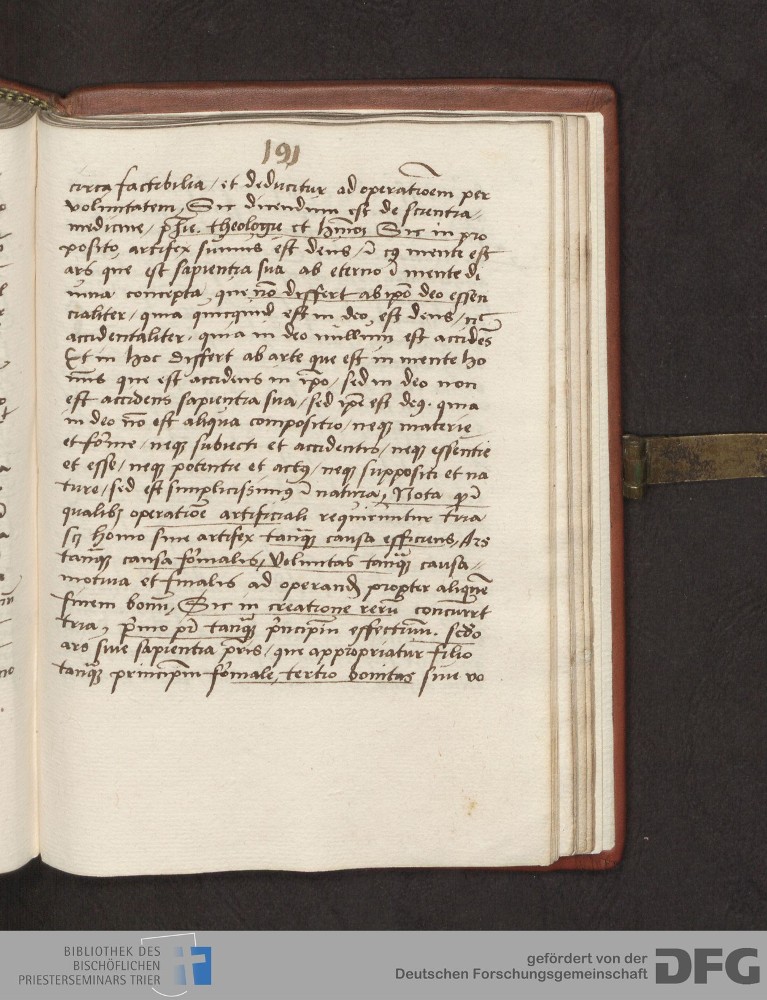 191
circa factibilia / et deducitur ad operationem per
voluntatem, Sic dicendum est de scientia /
medicine / theologie et Sic in pro
posito, artifex sumus est deus / ī cuj mente est
ars que est sapientia sua ab eterno ī mente di
uina concepta, que nō differt ab ipō deo essen
cialiter / quia quicquid est in deo, est deus / nec
accidentaliter / quia in deo nullum est accidēs
Et in hoc differt ab arte que est in mente ho
mīs que est accidens in ipō / sed in deo non
est accidens sapientia sua / sed ipē est deꝰ. quia
in deo nō est aliqua compositio / neqꝫ materie
et forme / neqꝫ subiecti et accidentis / neqꝫ essentie
et esse / neqꝫ potentie et actꝰ / neqꝫ suppositi et na
ture / sed est simplicissimus ī natura, Nota qᵈ ī
qualibꝫ operatiōe artificiali requiruntur tria
scꝫ homo siue artifex tanqꝫ causa efficiens, Ars
tanqꝫ causa formalis, Voluntas tanqꝫ causa
motiua et finalis ad operandꝫ propter aliquē
finem bonū, Sic in creatione rerū concurrt
tria, prīmo tanqꝫ prīncipiū effectiuū. scdo
ars siue sapientia pris, que appropriatur filio
tanqꝫ principiū formale, tertio bonitas siue vo
BIBLIOTHEK DES
BISCHÖFLICHEN
PRIESTERSEMINARS TRIER
gefördert von der
Deutschen Forschungsgemeinschaft
DFG